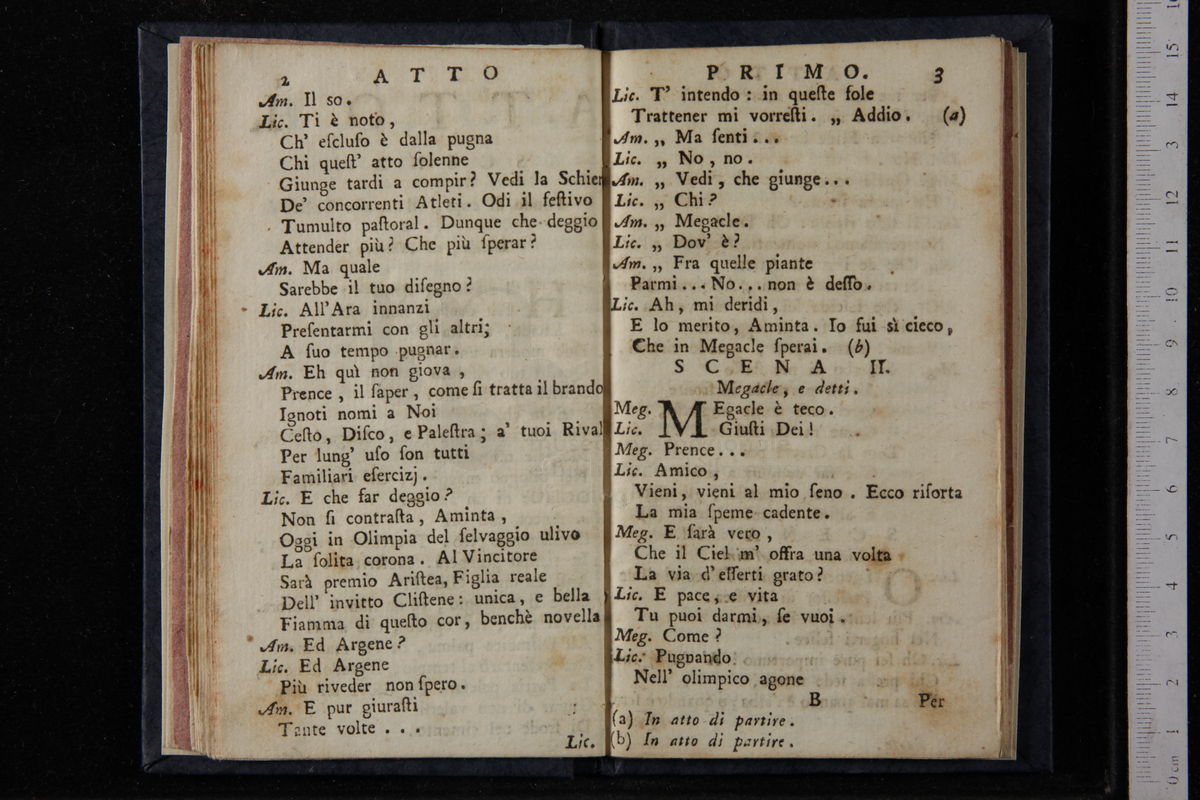 2 ATTO
Am. Il so.
Lic. Ti è noto,
Ch' eſcluſo è dalla pugna
Chi queſt' atto ſolenne
Giunge tardi a compir? Vedi la Schier
De' concorrenti Atleti. Odi il feſtivo
Tumulto paſtoral. Dunque che deggio
Attender più? Che più ſperar?
Am. Ma quale
Sarebbe il tuo diſegno?
Lic. All'Ara innanzi
Preſentarmi con gli altri;
A ſuo tempo pugnar.
Am. Eh quì non giova,
Prence, il ſaper, come ſi tratta il brando
Ignoti nomi a Noi
Ceſto, Diſco, e Paleſtra; a' tuoi Rival
Per lung' uſo ſon tutti
Familiari eſercizj.
Lic. E che far deggio?
Non ſi contraſta, Aminta,
Oggi in Olimpia del ſelvaggio ulivo
La ſolita corona. Al Vincitore
Sarà premio Ariſtea, Figlia reale
Dell' invitto Cliſtene: unica, e bella
Fiamma di queſto cor, benchè novella
Am. Ed Argene?
Lic. Ed Argene
Più riveder non ſpero.
Am. E pur giuraſti
Tante volte . . .
Lic.
PRIMO. 3
Lic. T' intendo: in queſte fole
Trattener mi vorreſti. „ Addio. (a)
Am. „ Ma ſenti...
Lic. „ No, no.
Am. „ Vedi, che giunge...
Lic. „ Chi?
Am. „ Megacle.
Lic. „ Dov' è?
Am. „ Fra quelle piante
Parmi... No... non è deſſo.
Lic. Ah, mi deridi,
E lo merito, Aminta. Io fui sì cieco,
Che in Megacle ſperai. (b)
SCENA II.
Megacle, e detti.
Meg. MEgacle è teco.
Lic. Giuſti Dei!
Meg. Prence...
Lic. Amico,
Vieni, vieni al mio ſeno. Ecco riſorta
La mia ſpeme cadente.
Meg. E ſarà vero,
Che il Ciel m' offra una volta
La via d' eſſerti grato?
Lic. E pace, e vita
Tu puoi darmi, ſe vuoi.
Meg. Come?
Lic. Pugnando
Nell' olimpico agone
B Per
(a) In atto di partire.
(b) In atto di partire.
0 cm 1 2 3 4 5 6 7 8 9 10 11 12 3 14 15 16